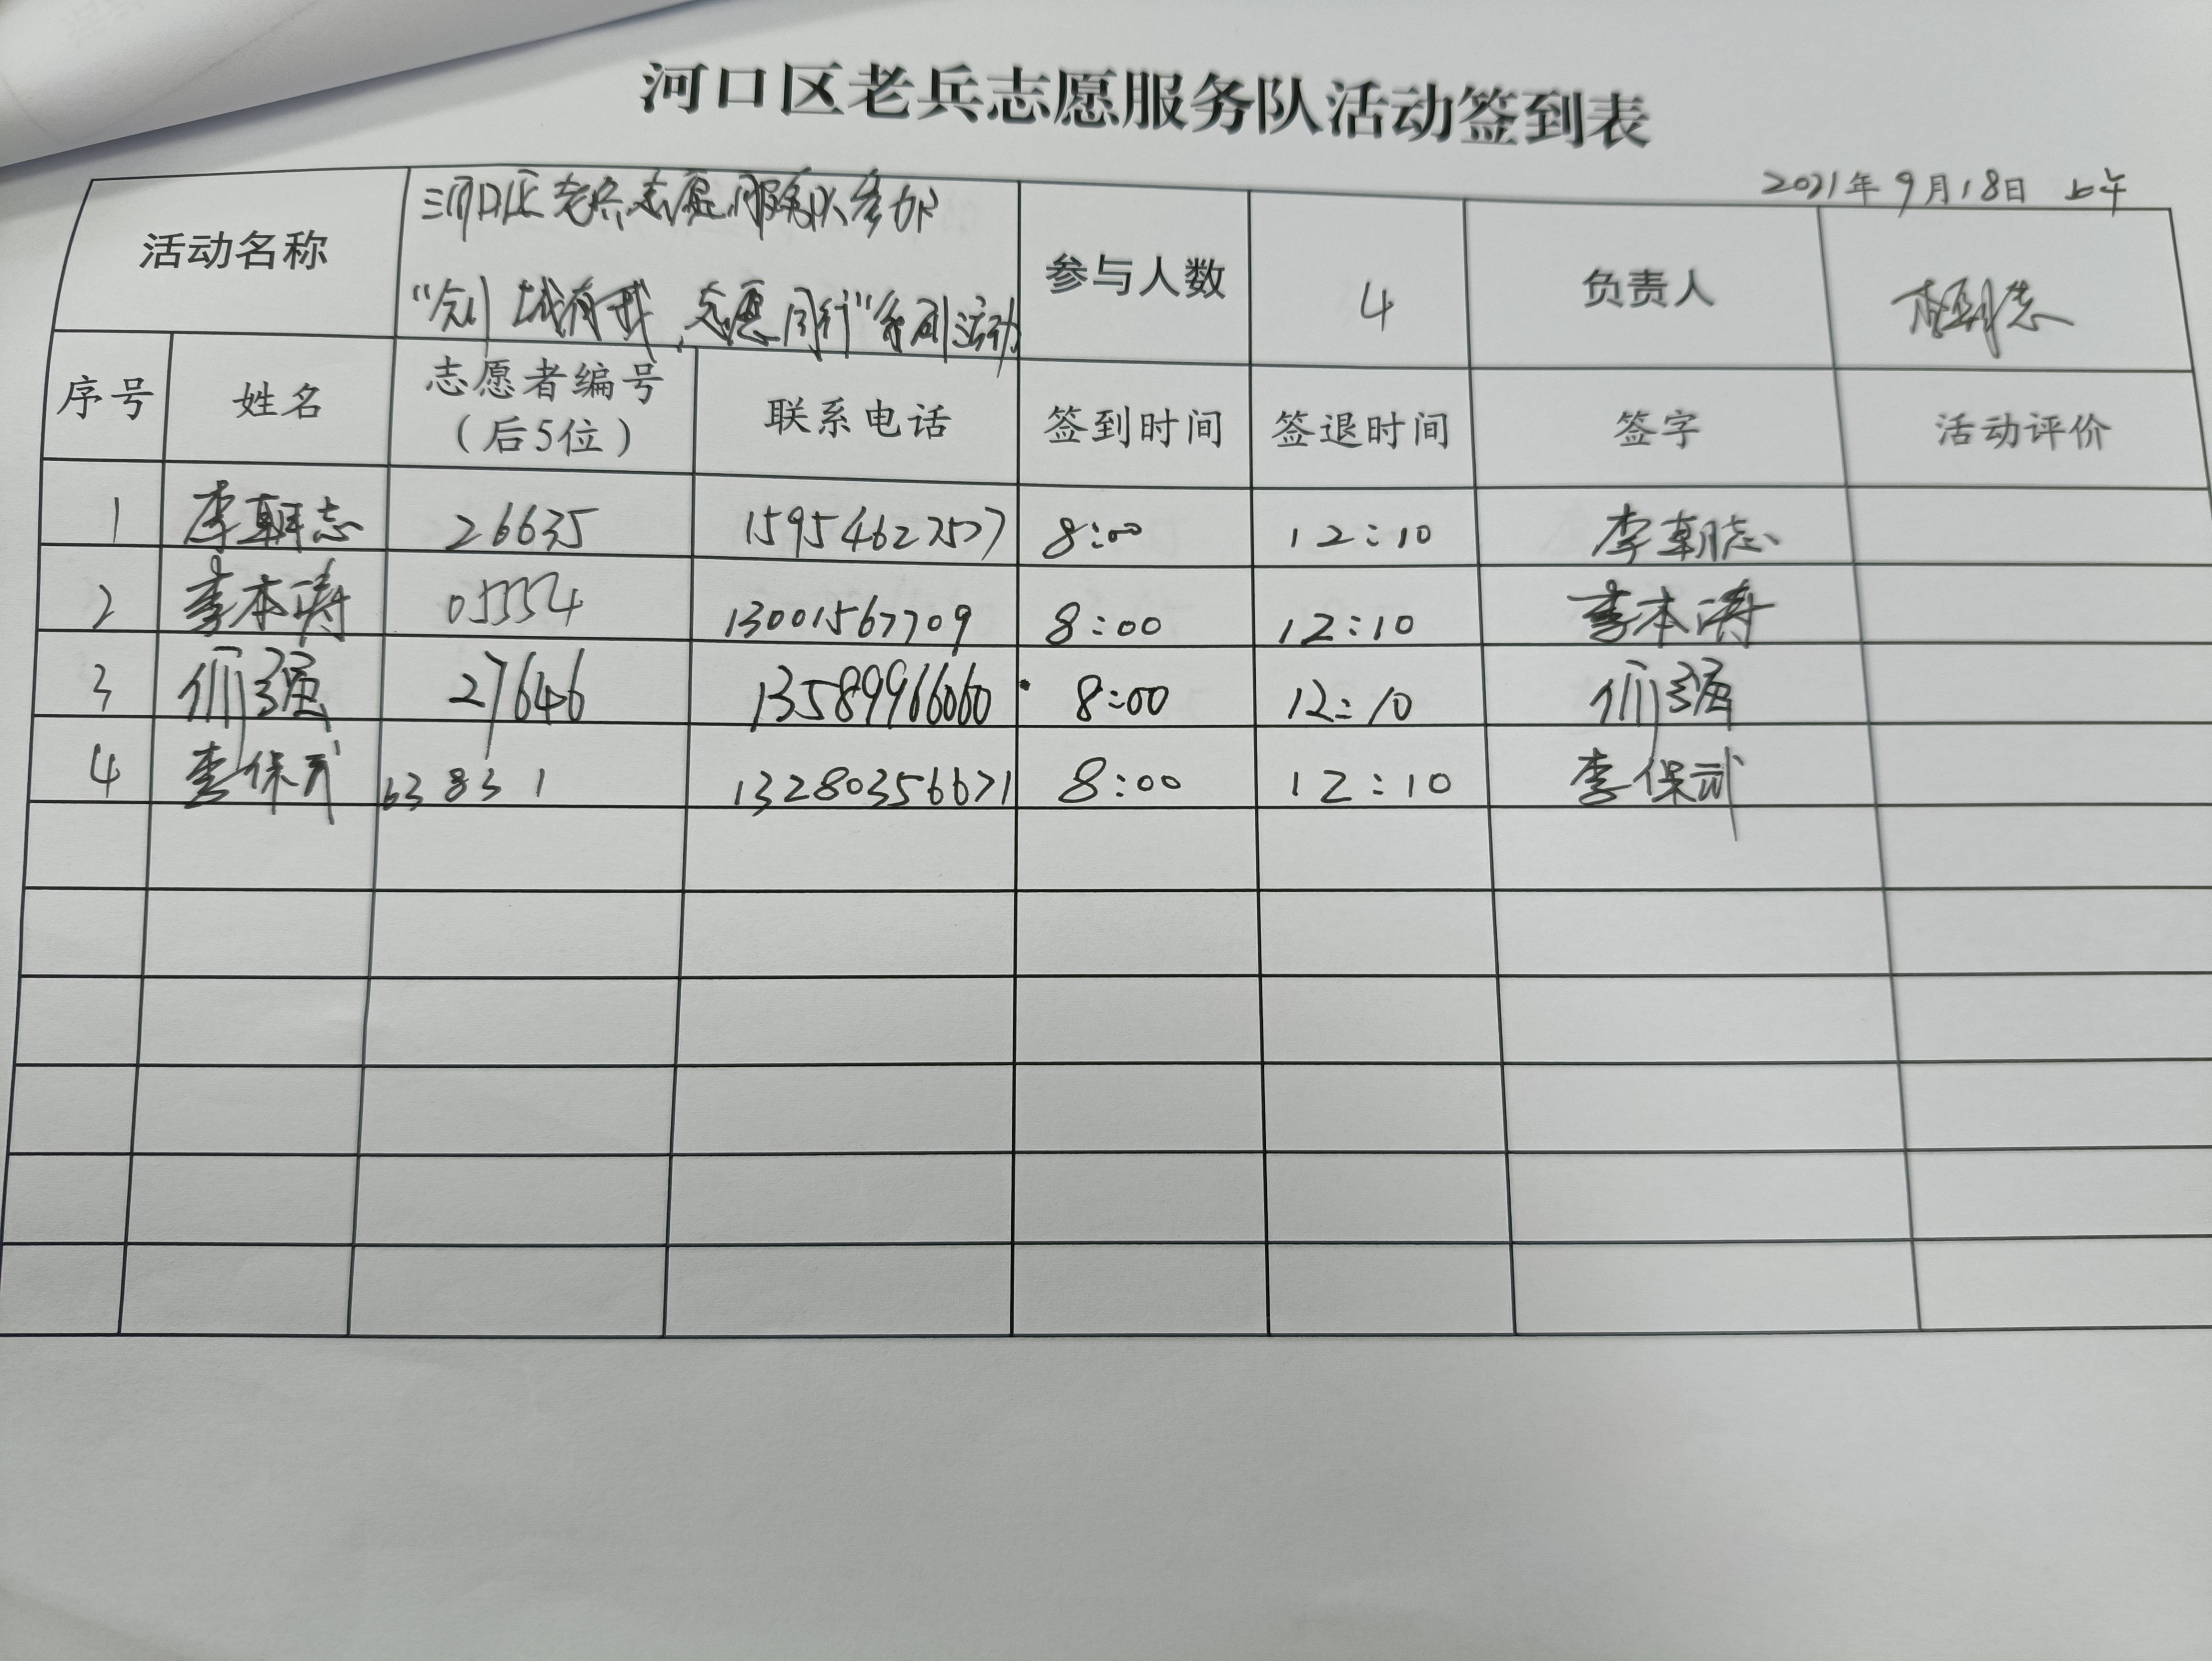 河口区老兵志愿服务队活动签到表
2021年9月18日 上午
活动名称
河口区老兵志愿服务队参加
“创城有我,志愿同行”系列活动
参与人数 4 负责人 李朝志
序号 姓名 志愿者编号
(后5位) 联系电话 签到时间 签退时间 签字 活动评价
1 李朝志 26635 15954627527 8:00 12:10 李朝志
2 李本涛 05554 13001567709 8:00 12:10 李本涛
3 强 27646 13589966060 8:00 12:10 强
4 李保武 63831 13280356671 8:00 12:10 李保武